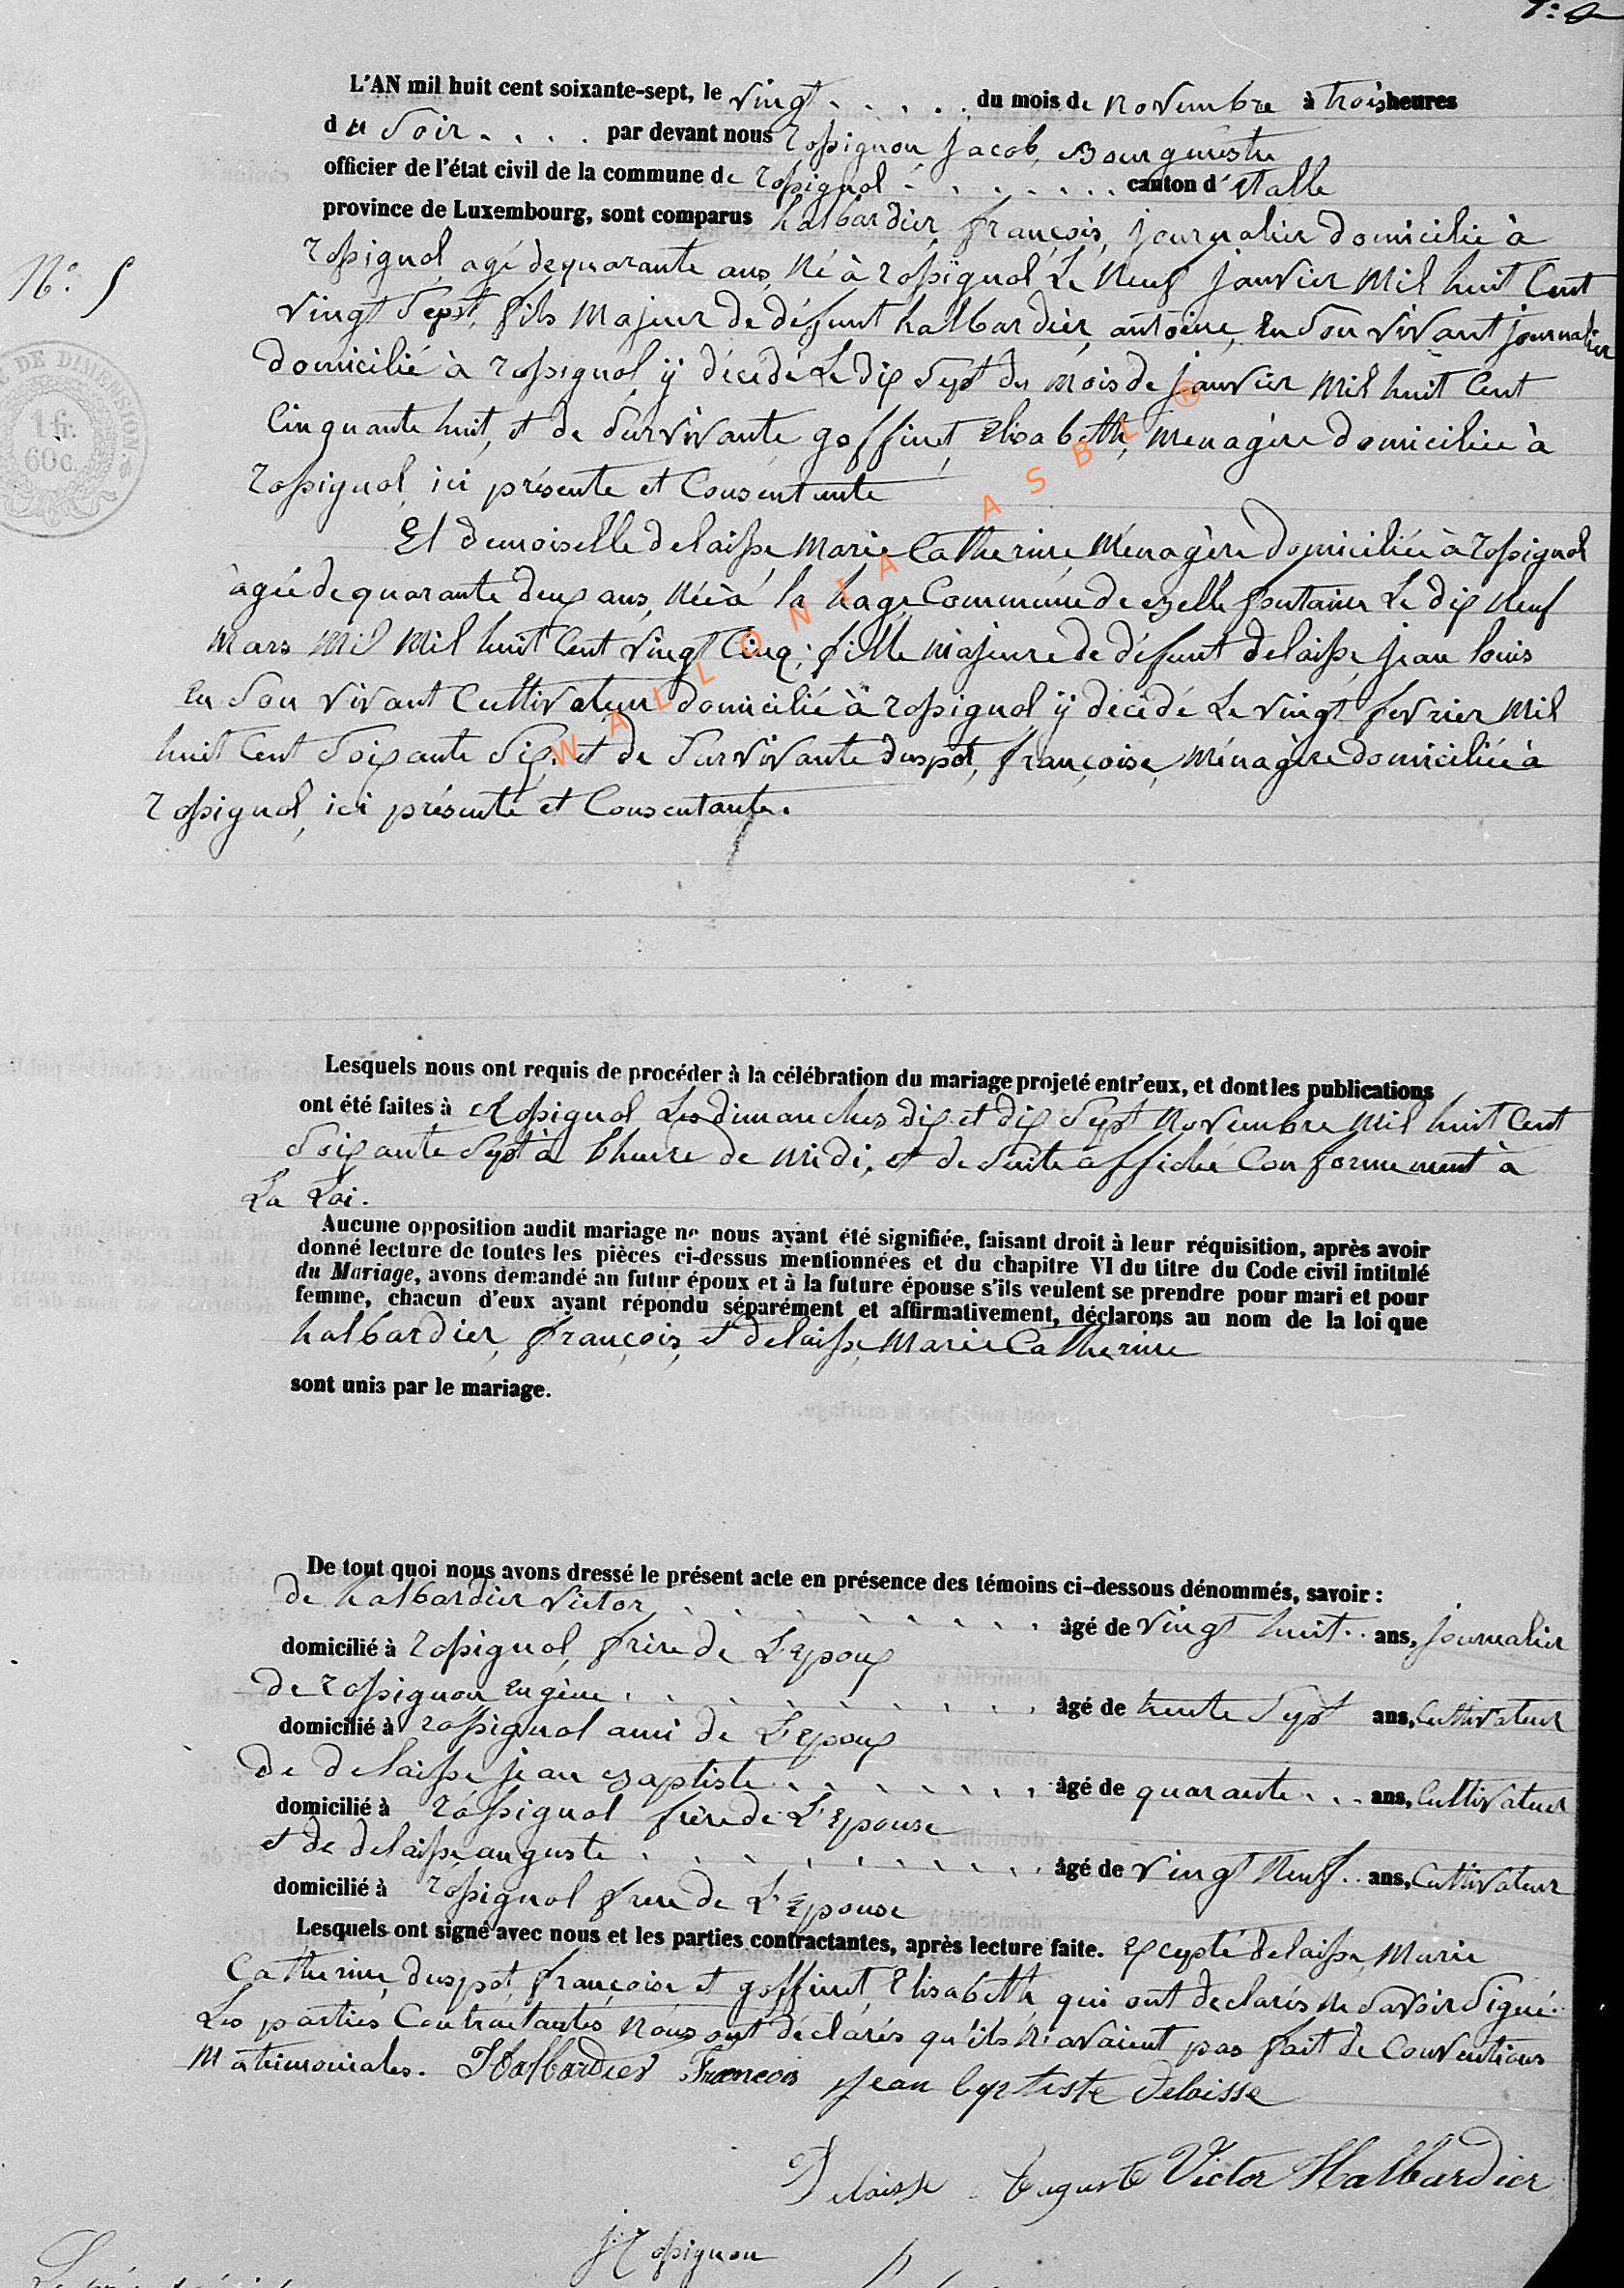 L'AN mil huit cent soixante-sept, le vingt . . . . . du mois de novembre à trois heures
du Soir . . . . par devant nous rossignon, jacob, Bourgmestre
officier de l'état civil de la commune de rossignol . . . . . . . canton d'etalle
province de Luxembourg, sont comparus halbardier, françois, journalier domicilié à
rossignol, agé de quarante ans, Né à rossignol Le Neuf janvier Mil huit Cent
N° 5
vingt Sept, fils Majeur de défunt halbardier, antoine, En Son vivant journalier
domicilié à rossignol, ÿ décédé Le dix Sept du mois de janvier Mil huit Cent
DE DIMENSION
1 fr.
60 c.
Cinquante huit, et de Survivante goffinet, Elisabeth, Menagère domiciliée à
rossignol, ici présente et Consentante
Et demoiselle delaisse, Marie Catherine, Ménagère domiciliée à rossignol
âgée de quarante deux ans, Née à la hage, Commune de ezelle fontaine Le dix Neuf
Mars Mil Mil huit Cent vingt Cinq, fille majeure de défunt delaisse, jean louis
En Son vivant Cultivateur domicilié à rossignol ÿ décédé Le vingt fevrier Mil
huit Cent Soixante Six. et de Survivante duspot, françoise, Ménagère domiciliée à
rossignol, ici présente et Consentante.
WALLONIA ASBL ®
Lesquels nous ont requis de procéder à la célébration du mariage projeté entr'eux, et dont les publications
ont été faites à Rossignol Les dimanches dix et dix Sept Novembre Mil huit Cent
Soixante Sept à l'heure de Midi, et de Suite affiché Conformement à
La Loi.
Aucune opposition audit mariage ne nous ayant été signifiée, faisant droit à leur réquisition, après avoir
donné lecture de toutes les pièces ci-dessus mentionnées et du chapitre VI du titre du Code civil intitulé
du Mariage, avons demandé au futur époux et à la future épouse s'ils veulent se prendre pour mari et pour
femme, chacun d'eux ayant répondu séparément et affirmativement, déclarons au nom de la loi que
halbardier, françois, et delaisse, Marie Catherine
sont unis par le mariage.
De tout quoi nous avons dressé le présent acte en présence des témoins ci-dessous dénommés, savoir :
de halbardier victor, . . . . . . . . âgé de vingt huit . . ans, journalier
domicilié à rossignol, frère de L'Epoux
de rossignon Eugène . . . . . . . . âgé de trente Sept ans, Cultivateur
domicilié à rossignol ami de L'Epoux
de delaisse jean Baptiste . . . . . . âgé de quarante . . . ans, Cultivateur
domicilié à rossignol frère de L'Epouse
et de delaisse auguste . . . . . . . . . âgé de vingt Neuf . . ans, Cultivateur
domicilié à rossignol frere de L'Epouse
Lesquels ont signé avec nous et les parties contractantes, après lecture faite. Excepté delaisse, Marie
Catherine, duspot, françoise et goffinet, Elisabeth, qui ont declarés ne Savoir Signé.
Les parties Contractantes Nous ont déclarés qu'ils N'avaient pas fait de Conventions
Matrimoniales. Halbardier François Jean baptiste Delaisse
Delaisse Auguste Victor Halbardier
J. Rossignon